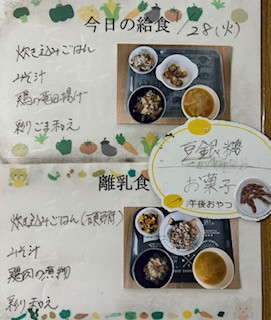 今日の給食 1/28(火)
炊き込みごはん
みそ汁
鶏の竜田揚げ
彩りごま和え
豆銀糖
お菓子
午後おやつ
離乳食
炊き込みごはん
みそ汁
鶏肉の煮物
彩り和え